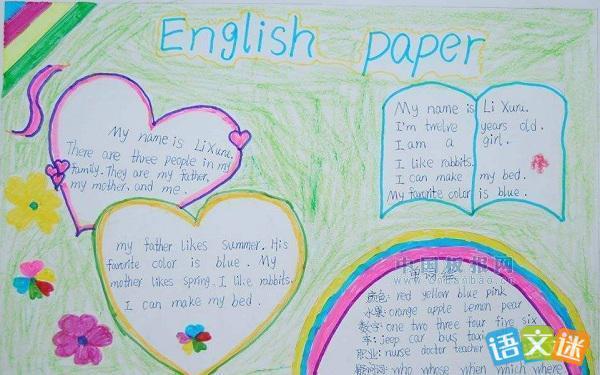 English paper
My name is Li Xuru.
There are three people in my
family. They are my father,
my mother, and me.
my father likes summer. His
favorite color is blue. My
mother likes spring. I like rabbits.
I can make my bed.
My name is Li Xuru.
I'm twelve years old.
I am a girl.
I like rabbits.
I can make my bed.
My favorite color is blue.
中国板报网
颜色: red yellow blue pink
水果: orange apple lemon pear
数字: one two three four five six
车: jeep car bus taxi
职业: nurse doctor teacher
疑问词: who whose when which where
语文迷